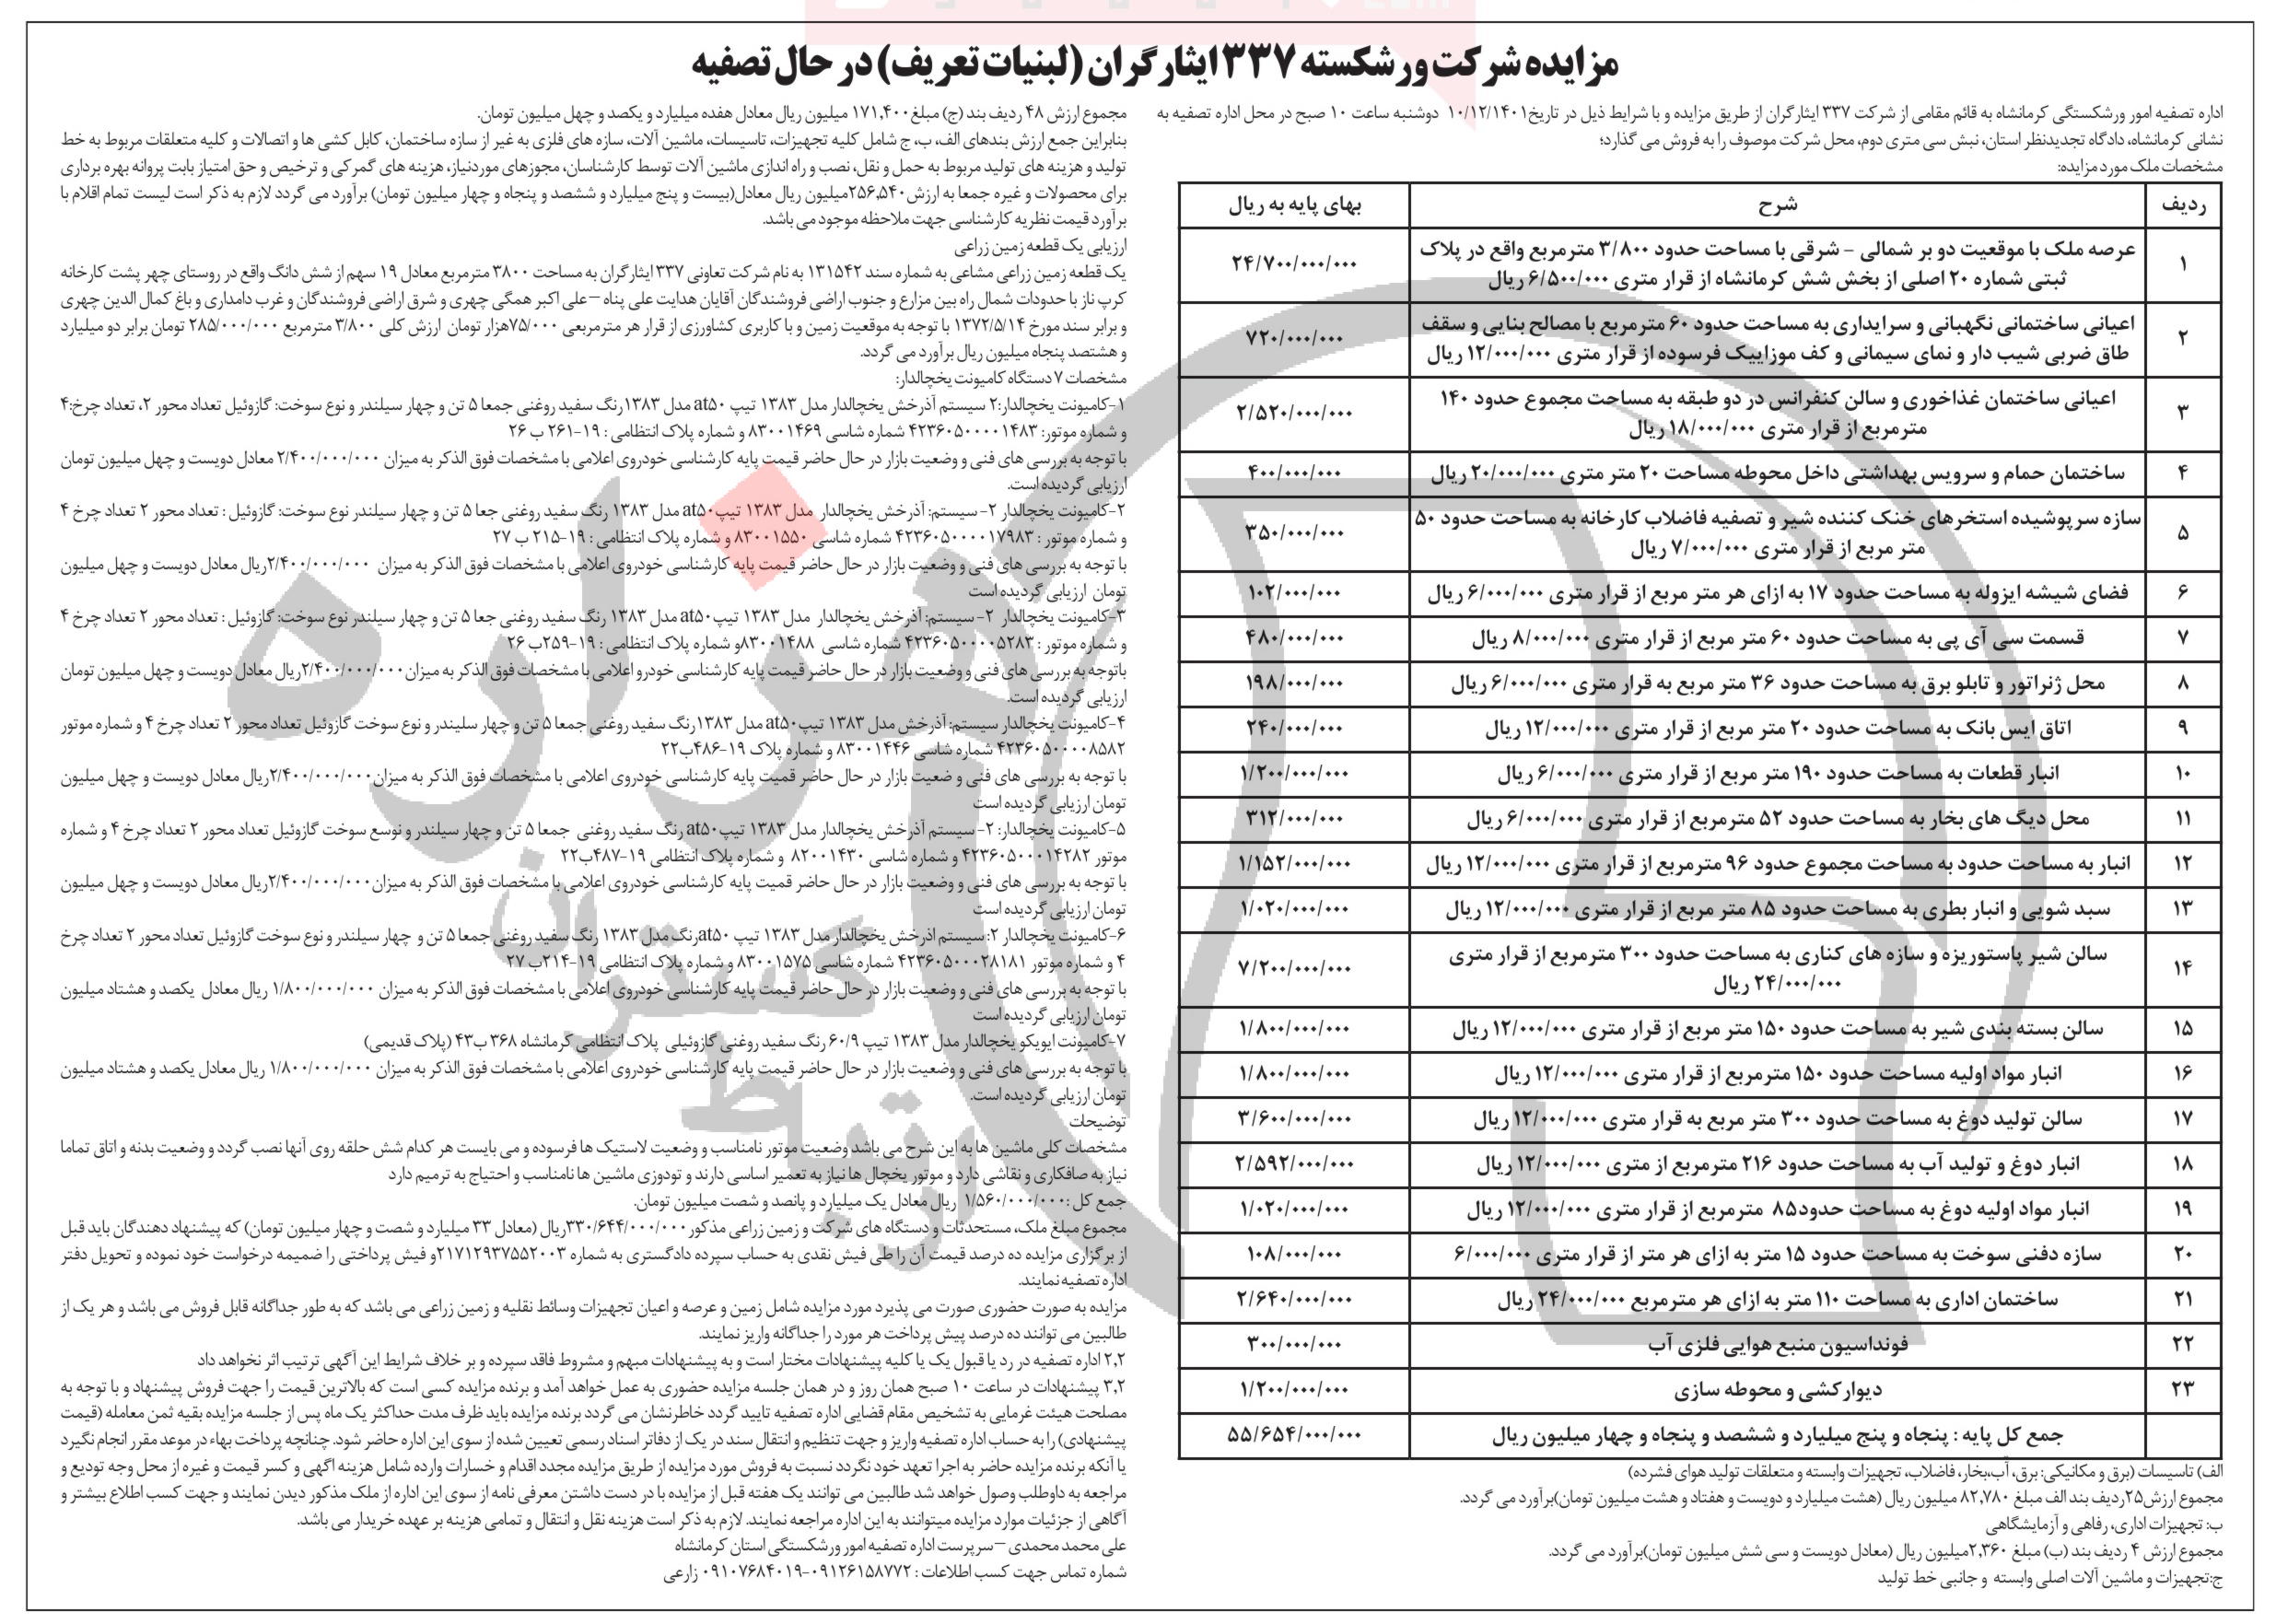 مزایده شرکت ورشکسته ۳۳۷ ایثارگران (لبنیات تعریف) در حال تصفیه
اداره تصفیه امور ورشکستگی کرمانشاه به قائم مقامی از شرکت ۳۳۷ ایثارگران از طریق مزایده و با شرایط ذیل در تاریخ ۱۰/۱۲/۱۴۰۱ دوشنبه ساعت ۱۰ صبح در محل اداره تصفیه به
نشانی کرمانشاه، دادگاه تجدیدنظر استان، نبش سی متری دوم، محل شرکت موصوف را به فروش می گذارد؛
مشخصات ملک مورد مزایده:
ردیف شرح بهای پایه به ریال
۱ عرصه ملک با موقعیت دو بر شمالی - شرقی با مساحت حدود ۳/۸۰۰ مترمربع واقع در پلاک ۲۴/۷۰۰/۰۰۰/۰۰۰
ثبتی شماره ۲۰ اصلی از بخش شش کرمانشاه از قرار متری ۶/۵۰۰/۰۰۰ ریال
۲ اعیانی ساختمانی نگهبانی و سرایداری به مساحت حدود ۶۰ مترمربع با مصالح بنایی و سقف ۷۲۰/۰۰۰/۰۰۰
طاق ضربی شیب دار و نمای سیمانی و کف موزاییک فرسوده از قرار متری ۱۲/۰۰۰/۰۰۰ ریال
۳ اعیانی ساختمان غذاخوری و سالن کنفرانس در دو طبقه به مساحت مجموع حدود ۱۴۰ ۲/۵۲۰/۰۰۰/۰۰۰
مترمربع از قرار متری ۱۸/۰۰۰/۰۰۰ ریال
۴ ساختمان حمام و سرویس بهداشتی داخل محوطه مساحت ۲۰ متر متری ۲۰/۰۰۰/۰۰۰ ریال ۴۰۰/۰۰۰/۰۰۰
۵ سازه سرپوشیده استخرهای خنک کننده شیر و تصفیه فاضلاب کارخانه به مساحت حدود ۵۰ ۳۵۰/۰۰۰/۰۰۰
متر مربع از قرار متری ۷/۰۰۰/۰۰۰ ریال
۶ فضای شیشه ایزوله به مساحت حدود ۱۷ به ازای هر متر مربع از قرار متری ۶/۰۰۰/۰۰۰ ریال ۱۰۲/۰۰۰/۰۰۰
۷ قسمت سی آی پی به مساحت حدود ۶۰ متر مربع از قرار متری ۸/۰۰۰/۰۰۰ ریال ۴۸۰/۰۰۰/۰۰۰
۸ محل ژنراتور و تابلو برق به مساحت حدود ۳۶ متر مربع به قرار متری ۶/۰۰۰/۰۰۰ ریال ۱۹۸/۰۰۰/۰۰۰
۹ اتاق ایس بانک به مساحت حدود ۲۰ متر مربع از قرار متری ۱۲/۰۰۰/۰۰۰ ریال ۲۴۰/۰۰۰/۰۰۰
۱۰ انبار قطعات به مساحت حدود ۱۹۰ متر مربع از قرار متری ۶/۰۰۰/۰۰۰ ریال ۱/۲۰۰/۰۰۰/۰۰۰
۱۱ محل دیگ های بخار به مساحت حدود ۵۲ مترمربع از قرار متری ۶/۰۰۰/۰۰۰ ریال ۳۱۲/۰۰۰/۰۰۰
۱۲ انبار به مساحت حدود به مساحت مجموع حدود ۹۶ مترمربع از قرار متری ۱۲/۰۰۰/۰۰۰ ریال ۱/۱۵۲/۰۰۰/۰۰۰
۱۳ سبد شویی و انبار بطری به مساحت حدود ۸۵ متر مربع از قرار متری ۱۲/۰۰۰/۰۰۰ ریال ۱/۰۲۰/۰۰۰/۰۰۰
۱۴ سالن شیر پاستوریزه و سازه های کناری به مساحت حدود ۳۰۰ مترمربع از قرار متری ۷/۲۰۰/۰۰۰/۰۰۰
۲۴/۰۰۰/۰۰۰ ریال
۱۵ سالن بسته بندی شیر به مساحت حدود ۱۵۰ متر مربع از قرار متری ۱۲/۰۰۰/۰۰۰ ریال ۱/۸۰۰/۰۰۰/۰۰۰
۱۶ انبار مواد اولیه مساحت حدود ۱۵۰ مترمربع از قرار متری ۱۲/۰۰۰/۰۰۰ ریال ۱/۸۰۰/۰۰۰/۰۰۰
۱۷ سالن تولید دوغ به مساحت حدود ۳۰۰ متر مربع به قرار متری ۱۲/۰۰۰/۰۰۰ ریال ۳/۶۰۰/۰۰۰/۰۰۰
۱۸ انبار دوغ و تولید آب به مساحت حدود ۲۱۶ مترمربع از متری ۱۲/۰۰۰/۰۰۰ ریال ۲/۵۹۲/۰۰۰/۰۰۰
۱۹ انبار مواد اولیه دوغ به مساحت حدود ۸۵ مترمربع از قرار متری ۱۲/۰۰۰/۰۰۰ ریال ۱/۰۲۰/۰۰۰/۰۰۰
۲۰ سازه دفنی سوخت به مساحت حدود ۱۵ متر به ازای هر متر از قرار متری ۶/۰۰۰/۰۰۰ ۱۰۸/۰۰۰/۰۰۰
۲۱ ساختمان اداری به مساحت ۱۱۰ متر به ازای هر مترمربع ۲۴/۰۰۰/۰۰۰ ریال ۲/۶۴۰/۰۰۰/۰۰۰
۲۲ فونداسیون منبع هوایی فلزی آب ۳۰۰/۰۰۰/۰۰۰
۲۳ دیوارکشی و محوطه سازی ۱/۲۰۰/۰۰۰/۰۰۰
جمع کل پایه : پنجاه و پنج میلیارد و ششصد و پنجاه و چهار میلیون ریال ۵۵/۶۵۴/۰۰۰/۰۰۰
الف) تاسیسات (برق و مکانیکی: برق، آب،بخار، فاضلاب، تجهیزات وابسته و متعلقات تولید هوای فشرده)
مجموع ارزش۲۵ردیف بند الف مبلغ ۸۲,۷۸۰ میلیون ریال (هشت میلیارد و دویست و هفتاد و هشت میلیون تومان)برآورد می گردد.
ب: تجهیزات اداری، رفاهی و آزمایشگاهی
مجموع ارزش ۴ ردیف بند (ب) مبلغ ۲,۳۶۰میلیون ریال (معادل دویست و سی شش میلیون تومان)برآورد می گردد.
ج:تجهیزات و ماشین آلات اصلی وابسته و جانبی خط تولید
مجموع ارزش ۴۸ ردیف بند (ج) مبلغ ۱۷۱,۴۰۰ میلیون ریال معادل هفده میلیارد و یکصد و چهل میلیون تومان.
بنابراین جمع ارزش بندهای الف، ب، ج شامل کلیه تجهیزات، تاسیسات، ماشین آلات، سازه های فلزی به غیر از سازه ساختمان، کابل کشی ها و اتصالات و کلیه متعلقات مربوط به خط
تولید و هزینه های تولید مربوط به حمل و نقل، نصب و راه اندازی ماشین آلات توسط کارشناسان، مجوزهای موردنیاز، هزینه های گمرکی و ترخیص و حق امتیاز بابت پروانه بهره برداری
برای محصولات و غیره جمعا به ارزش ۲۵۶,۵۴۰میلیون ریال معادل(بیست و پنج میلیارد و ششصد و پنجاه و چهار میلیون تومان) برآورد می گردد لازم به ذکر است لیست تمام اقلام با
برآورد قیمت نظریه کارشناسی جهت ملاحظه موجود می باشد.
ارزیابی یک قطعه زمین زراعی
یک قطعه زمین زراعی مشاعی به شماره سند ۱۳۱۵۴۲ به نام شرکت تعاونی ۳۳۷ ایثارگران به مساحت ۳۸۰۰ مترمربع معادل ۱۹ سهم از شش دانگ واقع در روستای چهر پشت کارخانه
کرپ ناز با حدودات شمال راه بین مزارع و جنوب اراضی فروشندگان آقایان هدایت علی پناه –علی اکبر همگی چهری و شرق اراضی فروشندگان و غرب دامداری و باغ کمال الدین چهری
و برابر سند مورخ ۱۳۷۲/۵/۱۴ با توجه به موقعیت زمین و با کاربری کشاورزی از قرار هر مترمربعی ۷۵/۰۰۰هزار تومان ارزش کلی ۳/۸۰۰ مترمربع ۲۸۵/۰۰۰/۰۰۰ تومان برابر دو میلیارد
و هشتصد پنجاه میلیون ریال برآورد می گردد.
مشخصات ۷ دستگاه کامیونت یخچالدار:
۱-کامیونت یخچالدار:۲ سیستم آذرخش یخچالدار مدل ۱۳۸۳ تیپ at۵۰ مدل ۱۳۸۳رنگ سفید روغنی جمعا ۵ تن و چهار سیلندر و نوع سوخت: گازوئیل تعداد محور ۲، تعداد چرخ:۴
و شماره موتور: ۴۲۳۶۰۵۰۰۰۰۱۴۸۳ شماره شاسی ۸۳۰۰۱۴۶۹ و شماره پلاک انتظامی : ۱۹-۲۶۱ ب ۲۶
با توجه به بررسی های فنی و وضعیت بازار در حال حاضر قیمت پایه کارشناسی خودروی اعلامی با مشخصات فوق الذکر به میزان ۲/۴۰۰/۰۰۰/۰۰۰ معادل دویست و چهل میلیون تومان
ارزیابی گردیده است.
۲-کامیونت یخچالدار ۲- سیستم: آذرخش یخچالدار مدل ۱۳۸۳ تیپ at۵۰ مدل ۱۳۸۳ رنگ سفید روغنی جعا ۵ تن و چهار سیلندر نوع سوخت: گازوئیل : تعداد محور ۲ تعداد چرخ ۴
و شماره موتور : ۴۲۳۶۰۵۰۰۰۰۱۷۹۸۳ شماره شاسی ۸۳۰۰۱۵۵۰ و شماره پلاک انتظامی : ۱۹-۲۱۵ ب ۲۷
با توجه به بررسی های فنی و وضعیت بازار در حال حاضر قیمت پایه کارشناسی خودروی اعلامی با مشخصات فوق الذکر به میزان ۲/۴۰۰/۰۰۰/۰۰۰ریال معادل دویست و چهل میلیون
تومان ارزیابی گردیده است
۳-کامیونت یخچالدار ۲- سیستم: آذرخش یخچالدار مدل ۱۳۸۳ تیپ at۵۰ مدل ۱۳۸۳ رنگ سفید روغنی جعا ۵ تن و چهار سیلندر نوع سوخت: گازوئیل : تعداد محور ۲ تعداد چرخ ۴
و شماره موتور : ۴۲۳۶۰۵۰۰۰۰۵۲۸۳ شماره شاسی ۸۳۰۰۱۴۸۸و شماره پلاک انتظامی : ۱۹-۲۵۹ب ۲۶
باتوجه به بررسی های فنی و وضعیت بازار در حال حاضر قیمت پایه کارشناسی خودرو اعلامی با مشخصات فوق الذکر به میزان ۲/۴۰۰/۰۰۰/۰۰۰ریال معادل دویست و چهل میلیون تومان
ارزیابی گردیده است.
۴-کامیونت یخچالدار سیستم: آذرخش مدل ۱۳۸۳ تیپ at۵۰ مدل ۱۳۸۳رنگ سفید روغنی جمعا ۵ تن و چهار سلیندر و نوع سوخت گازوئیل تعداد محور ۲ تعداد چرخ ۴ و شماره موتور
۴۲۳۶۰۵۰۰۰۰۸۵۸۲ شماره شاسی ۸۳۰۰۱۴۴۶ و شماره پلاک ۱۹-۴۸۶ب۲۲
با توجه به بررسی های فنی و ضعیت بازار در حال حاضر قمیت پایه کارشناسی خودروی اعلامی با مشخصات فوق الذکر به میزان ۲/۴۰۰/۰۰۰/۰۰۰ریال معادل دویست و چهل میلیون
تومان ارزیابی گردیده است
۵-کامیونت یخچالدار: ۲- سیستم آذرخش یخچالدار مدل ۱۳۸۳ تیپ at۵۰ رنگ سفید روغنی جمعا ۵ تن و چهار سیلندر و نوسع سوخت گازوئیل تعداد محور ۲ تعداد چرخ ۴ و شماره
موتور ۴۲۳۶۰۵۰۰۰۱۴۲۸۲ و شماره شاسی ۸۲۰۰۱۴۳۰ و شماره پلاک انتظامی ۱۹-۴۸۷ب۲۲
با توجه به بررسی های فنی و وضعیت بازار در حال حاضر قمیت پایه کارشناسی خودروی اعلامی با مشخصات فوق الذکر به میزان ۲/۴۰۰/۰۰۰/۰۰۰ریال معادل دویست و چهل میلیون
تومان ارزیابی گردیده است
۶-کامیونت یخچالدار ۲: سیستم اذرخش یخچالدار مدل ۱۳۸۳ تیپ at۵۰رنگ مدل ۱۳۸۳ رنگ سفید روغنی جمعا ۵ تن و چهار سیلندر و نوع سوخت گازوئیل تعداد محور ۲ تعداد چرخ
۴ و شماره موتور ۴۲۳۶۰۵۰۰۰۲۸۱۸۱ شماره شاسی ۸۳۰۰۱۵۷۵ و شماره پلاک انتظامی ۱۹-۲۱۴ب ۲۷
با توجه به بررسی های فنی و وضعیت بازار در حال حاضر قیمت پایه کارشناسی خودروی اعلامی با مشخصات فوق الذکر به میزان ۱/۸۰۰/۰۰۰/۰۰۰ ریال معادل یکصد و هشتاد میلیون
تومان ارزیابی گردیده است
۷-کامیونت ایویکو یخچالدار مدل ۱۳۸۳ تیپ ۶۰/۹ رنگ سفید روغنی گازوئیلی پلاک انتظامی کرمانشاه ۳۶۸ ب۴۳ (پلاک قدیمی)
با توجه به بررسی های فنی و وضعیت بازار در حال حاضر قیمت پایه کارشناسی خودروی اعلامی با مشخصات فوق الذکر به میزان ۱/۸۰۰/۰۰۰/۰۰۰ ریال معادل یکصد و هشتاد میلیون
تومان ارزیابی گردیده است.
توضیحات
مشخصات کلی ماشین ها به این شرح می باشد وضعیت موتور نامناسب و وضعیت لاستیک ها فرسوده و می بایست هر کدام شش حلقه روی آنها نصب گردد و وضعیت بدنه و اتاق تماما
نیاز به صافکاری و نقاشی دارد و موتور یخچال ها نیاز به تعمیر اساسی دارند و تودوزی ماشین ها نامناسب و احتیاج به ترمیم دارد
جمع کل :۱/۵۶۰/۰۰۰/۰۰۰ ریال معادل یک میلیارد و پانصد و شصت میلیون تومان.
مجموع مبلغ ملک، مستحدثات و دستگاه های شرکت و زمین زراعی مذکور ۳۳۰/۶۴۴/۰۰۰/۰۰۰ریال (معادل ۳۳ میلیارد و شصت و چهار میلیون تومان) که پیشنهاد دهندگان باید قبل
از برگزاری مزایده ده درصد قیمت آن را طی فیش نقدی به حساب سپرده دادگستری به شماره ۲۱۷۱۲۹۳۷۵۵۲۰۰۳و فیش پرداختی را ضمیمه درخواست خود نموده و تحویل دفتر
اداره تصفیه نمایند.
مزایده به صورت حضوری صورت می پذیرد مورد مزایده شامل زمین و عرصه و اعیان تجهیزات وسائط نقلیه و زمین زراعی می باشد که به طور جداگانه قابل فروش می باشد و هر یک از
طالبین می توانند ده درصد پیش پرداخت هر مورد را جداگانه واریز نمایند.
۲,۲ اداره تصفیه در رد یا قبول یک یا کلیه پیشنهادات مختار است و به پیشنهادات مبهم و مشروط فاقد سپرده و بر خلاف شرایط این آگهی ترتیب اثر نخواهد داد
۳,۲ پیشنهادات در ساعت ۱۰ صبح همان روز و در همان جلسه مزایده حضوری به عمل خواهد آمد و برنده مزایده کسی است که بالاترین قیمت را جهت فروش پیشنهاد و با توجه به
مصلحت هیئت غرمایی به تشخیص مقام قضایی اداره تصفیه تایید گردد خاطرنشان می گردد برنده مزایده باید ظرف مدت حداکثر یک ماه پس از جلسه مزایده بقیه ثمن معامله (قیمت
پیشنهادی) را به حساب اداره تصفیه واریز و جهت تنظیم و انتقال سند در یک از دفاتر اسناد رسمی تعیین شده از سوی این اداره حاضر شود. چنانچه پرداخت بهاء در موعد مقرر انجام نگیرد
یا آنکه برنده مزایده حاضر به اجرا تعهد خود نگردد نسبت به فروش مورد مزایده از طریق مزایده مجدد اقدام و خسارات وارده شامل هزینه اگهی و کسر قیمت و غیره از محل وجه تودیع و
مراجعه به داوطلب وصول خواهد شد طالبین می توانند یک هفته قبل از مزایده با در دست داشتن معرفی نامه از سوی این اداره از ملک مذکور دیدن نمایند و جهت کسب اطلاع بیشتر و
آگاهی از جزئیات موارد مزایده میتوانند به این اداره مراجعه نمایند. لازم به ذکر است هزینه نقل و انتقال و تمامی هزینه بر عهده خریدار می باشد.
علی محمد محمدی –سرپرست اداره تصفیه امور ورشکستگی استان کرمانشاه
شماره تماس جهت کسب اطلاعات : ۰۹۱۲۶۱۵۸۷۷۲-۰۹۱۰۷۶۸۴۰۱۹ زارعی